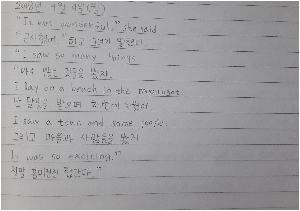 2018년 4월 9일(월)
"It was wonderful," she said
"굉장했어" 하고 그녀가 말했다
"I saw so many things.
"아주 많은 것들을 봤지.
I lay on a beach in the moonlight
난 달빛을 받으며 해변에 누웠어
I saw a town and some people.
그리고 마을과 사람들을 봤지
It was so exciting."
정말 흥미진진 했단다."